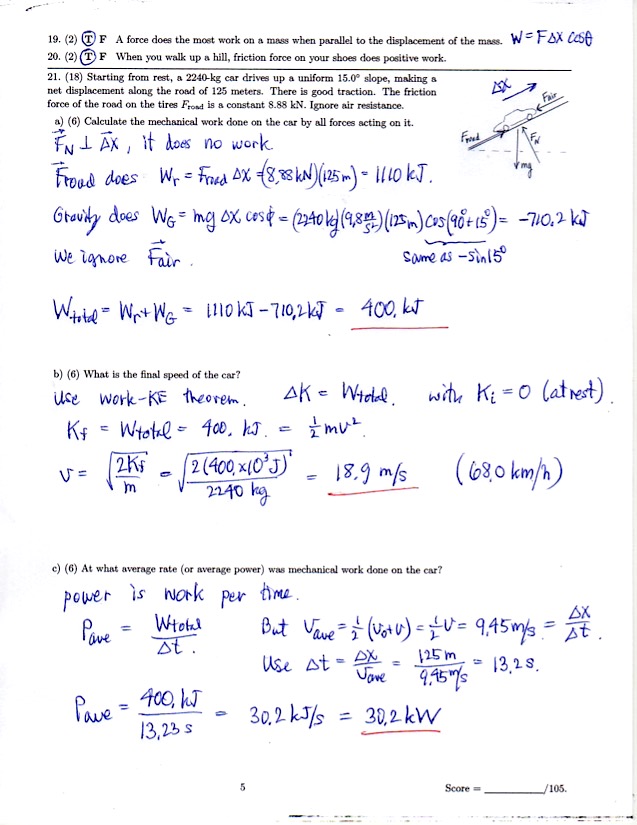 19. (2) T F A force does the most work on a mass when parallel to the displacement of the mass. W = FΔx cosθ
20. (2) T F When you walk up a hill, friction force on your shoes does positive work.
21. (18) Starting from rest, a 2240-kg car drives up a uniform 15.0° slope, making a
net displacement along the road of 125 meters. There is good traction. The friction
force of the road on the tires F_road is a constant 8.88 kN. Ignore air resistance.
Δx
Fair
Froad
FN
mg
a) (6) Calculate the mechanical work done on the car by all forces acting on it.
FN ⊥ Δx, it does no work.
Froad does Wr = Froad Δx = (8,88 kN)(125 m) = 1110 kJ.
Gravity does WG = mg Δx cosφ = (2240 kg)(9,8 m/s²)(125 m) cos(90°+15°) = -710.2 kJ
same as -sin15°
We ignore Fair.
Wtotal = Wr + WG = 1110 kJ - 710,2 kJ = 400. kJ
b) (6) What is the final speed of the car?
Use work-KE theorem. ΔK = Wtotal. with Ki = 0 (at rest).
Kf = Wtotal = 400. kJ. = ½mv².
v = √(2Kf/m) = √(2(400.x10³J)/2240 kg) = 18.9 m/s (68.0 km/h)
c) (6) At what average rate (or average power) was mechanical work done on the car?
power is work per time.
Pave = Wtotal/Δt. But Vave = ½(v0+v) = ½v = 9,45 m/s = Δx/Δt.
Use Δt = Δx/Vave = 125 m/9,45 m/s = 13,2 s.
Pave = 400. kJ/13,23 s = 30,2 kJ/s = 30,2 kW
5 Score = /105.